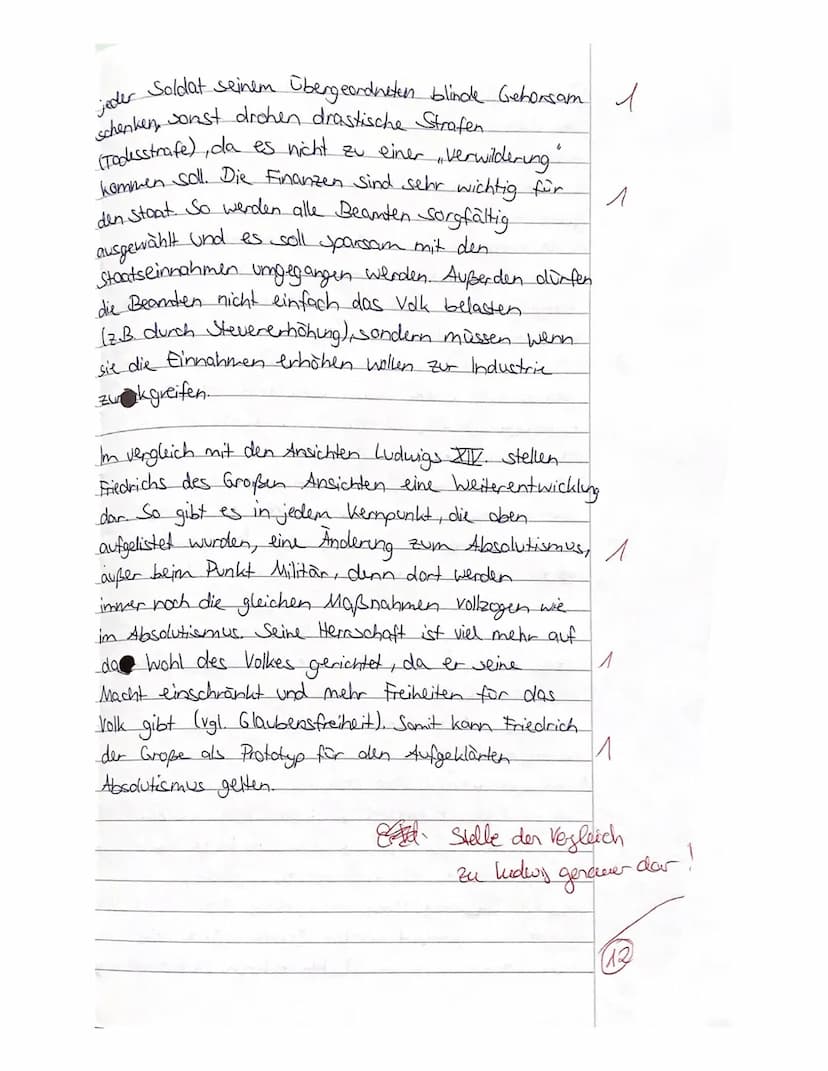 jeder Soldat seinem Übergeordneten blinde Gehorsam 1
schenken, sonst drohen drastische Strafen
(Todesstrafe), da es nicht zu einer „Verwilderung"
kommen soll. Die Finanzen sind sehr wichtig für 1
den Staat. So werden alle Beamten sorgfältig
ausgewählt und es soll sparsam mit den
Staatseinnahmen umgegangen werden. Außerden dürfen
die Beamten nicht einfach das Volk belasten
(z.B. durch Steuererhöhung), sondern müssen wenn
sie die Einnahmen erhöhen wollen zur Industrie
zurückgreifen.
Im vergleich mit den Ansichten Ludwigs XIV. stellen
Friedrichs des Großen Ansichten eine Weiterentwicklung
dar. So gibt es in jedem Kernpunkt, die oben
aufgelistet wurden, eine Änderung zum Absolutismus, 1
außer beim Punkt Militär, denn dort werden
immer noch die gleichen Maßnahmen vollzogen wie
im Absolutismus. Seine Herrschaft ist viel mehr auf
das Wohl des Volkes gerichtet, da er seine 1
Macht einschränkt und mehr Freiheiten für das
Volk gibt (vgl. Glaubensfreiheit). Somit kann Friedrich
der Große als Prototyp für den Aufgeklärten 1
Absolutismus gelten.
Stelle den Vergleich
zu Ludwig genauer dar!
12